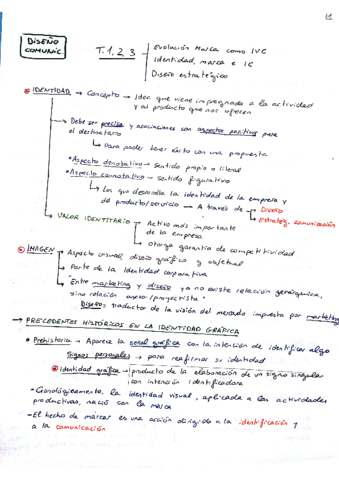 1
DISEÑO
COMUNIC.
T.1,2,3
Evolución Marca como IVC
Identidad, marca e IC
Diseño estratégico
IDENTIDAD → Concepto → Idea que viene impregnada a la actividad
y al producto que nos ofrecen
Debe ser precisa y asociaciones con aspectos positivos para
el destinatario
Para poder tener éxito con una propuesta
* Aspecto denotativo → sentido propio o literal
* Aspecto connotativo → sentido figurativo
Los que desarrolla la identidad de la empresa y
del producto/servicio - A través de → Diseño
Estrateg. comunicación
VALOR IDENTITARIO → Activo más importante
de la empresa
Otorga garantía de competitividad
IMAGEN → Aspecto visual, diseño gráfico y objetual
Parte de la identidad corporativa
Entre marketing y diseño ya no existe relación jerárquica,
sino relación asesor/proyectista.
Diseño = traductor de la visión del mercado impuesta por marketing
→ PRECEDENTES HISTÓRICOS EN LA IDENTIDAD GRÁFICA
• Prehistoria → Aparece la señal gráfica con la intención de identificar algo
Signos personales → para reafirmar su identidad
Identidad gráfica → producto de la elaboración de un signo singular
con intención identificadora
- Genealógicamente, la identidad visual, aplicada a las actividades
productivas, nació con la marca
- El hecho de marcar es una acción dirigida a la identificación y
a la comunicación